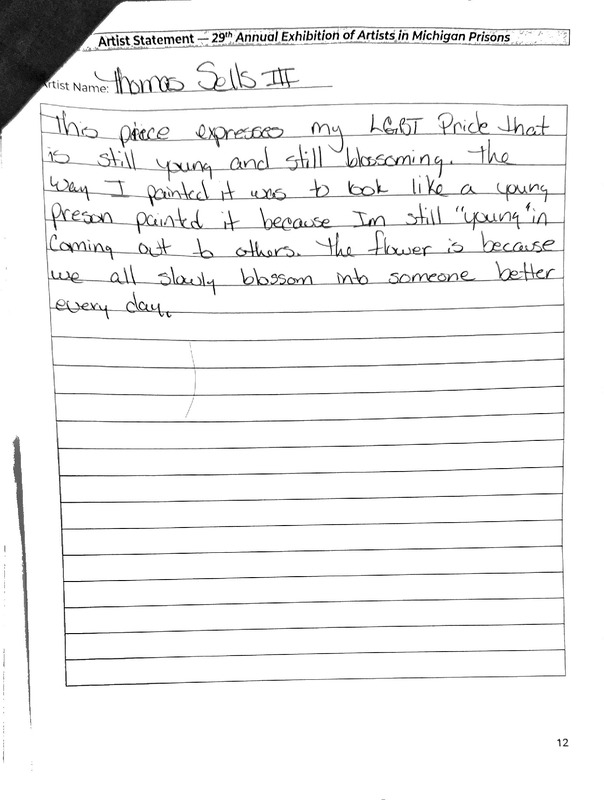 Artist Statement — 29th Annual Exhibition of Artists in Michigan Prisons
Artist Name: Thomas Sells III
This piece expresses my LGBT Pride that
is still young and still blossoming. The
way I painted it was to look like a young
preson painted it because Im still "young" in
coming out to others. The flower is because
we all slowly blossom into someone better
every day.
12